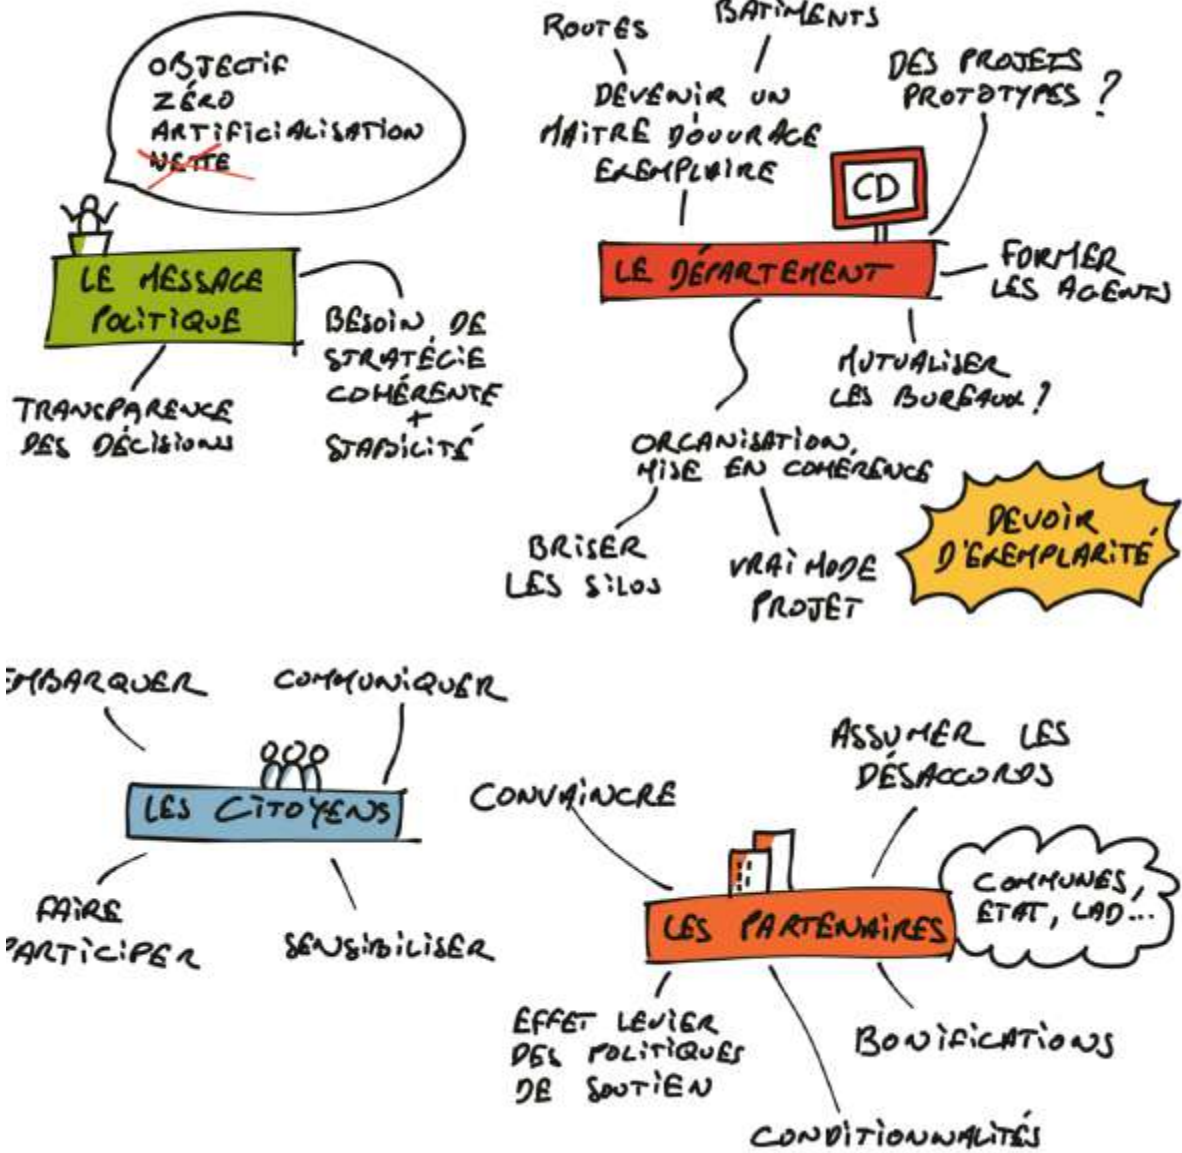 OBJECTIF
ZÉRO
ARTIFICIALISATION
NETTE
LE MESSAGE
POLITIQUE
BESOIN DE
STRATÉGIE
COHÉRENTE
+
STABILITÉ
TRANSPARENCE
DES DÉCISIONS
ROUTES
BATIMENTS
DEVENIR UN
MAITRE D'OUVRAGE
EXEMPLAIRE
DES PROJETS
PROTOTYPES ?
CD
LE DÉPARTEMENT
FORMER
LES AGENTS
MUTUALISER
LES BUREAUX ?
ORGANISATION,
MISE EN COHÉRENCE
BRISER
LES SILOS
VRAI MODE
PROJET
DEVOIR
D'EXEMPLARITÉ
EMBARQUER
COMMUNIQUER
LES CITOYENS
FAIRE
PARTICIPER
SENSIBILISER
CONVAINCRE
ASSUMER LES
DÉSACCORDS
LES PARTENAIRES
COMMUNES,
ETAT, LAD...
EFFET LEVIER
DES POLITIQUES
DE SOUTIEN
BONIFICATIONS
CONDITIONNALITÉS